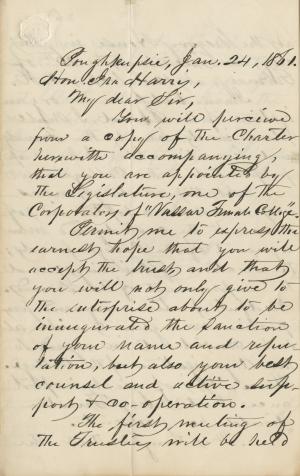 Poughkeepsie, Jan. 24, 1861.
Hon. Ira Harris,
My dear Sir,
You will perceive
from a copy of the Charter
herewith accompanying,
that you are appointed by
the Legislature, one of the
Corporators of "Vassar Female College".
Permit me to express the
earnest hope that you will
accept the trust and that
you will not only give to
the enterprise about to be
inaugurated the sanction
of your name and repu-
tation, but also your best
counsel and active sup-
port & co-operation.
The first meeting of
the Trustees will be held